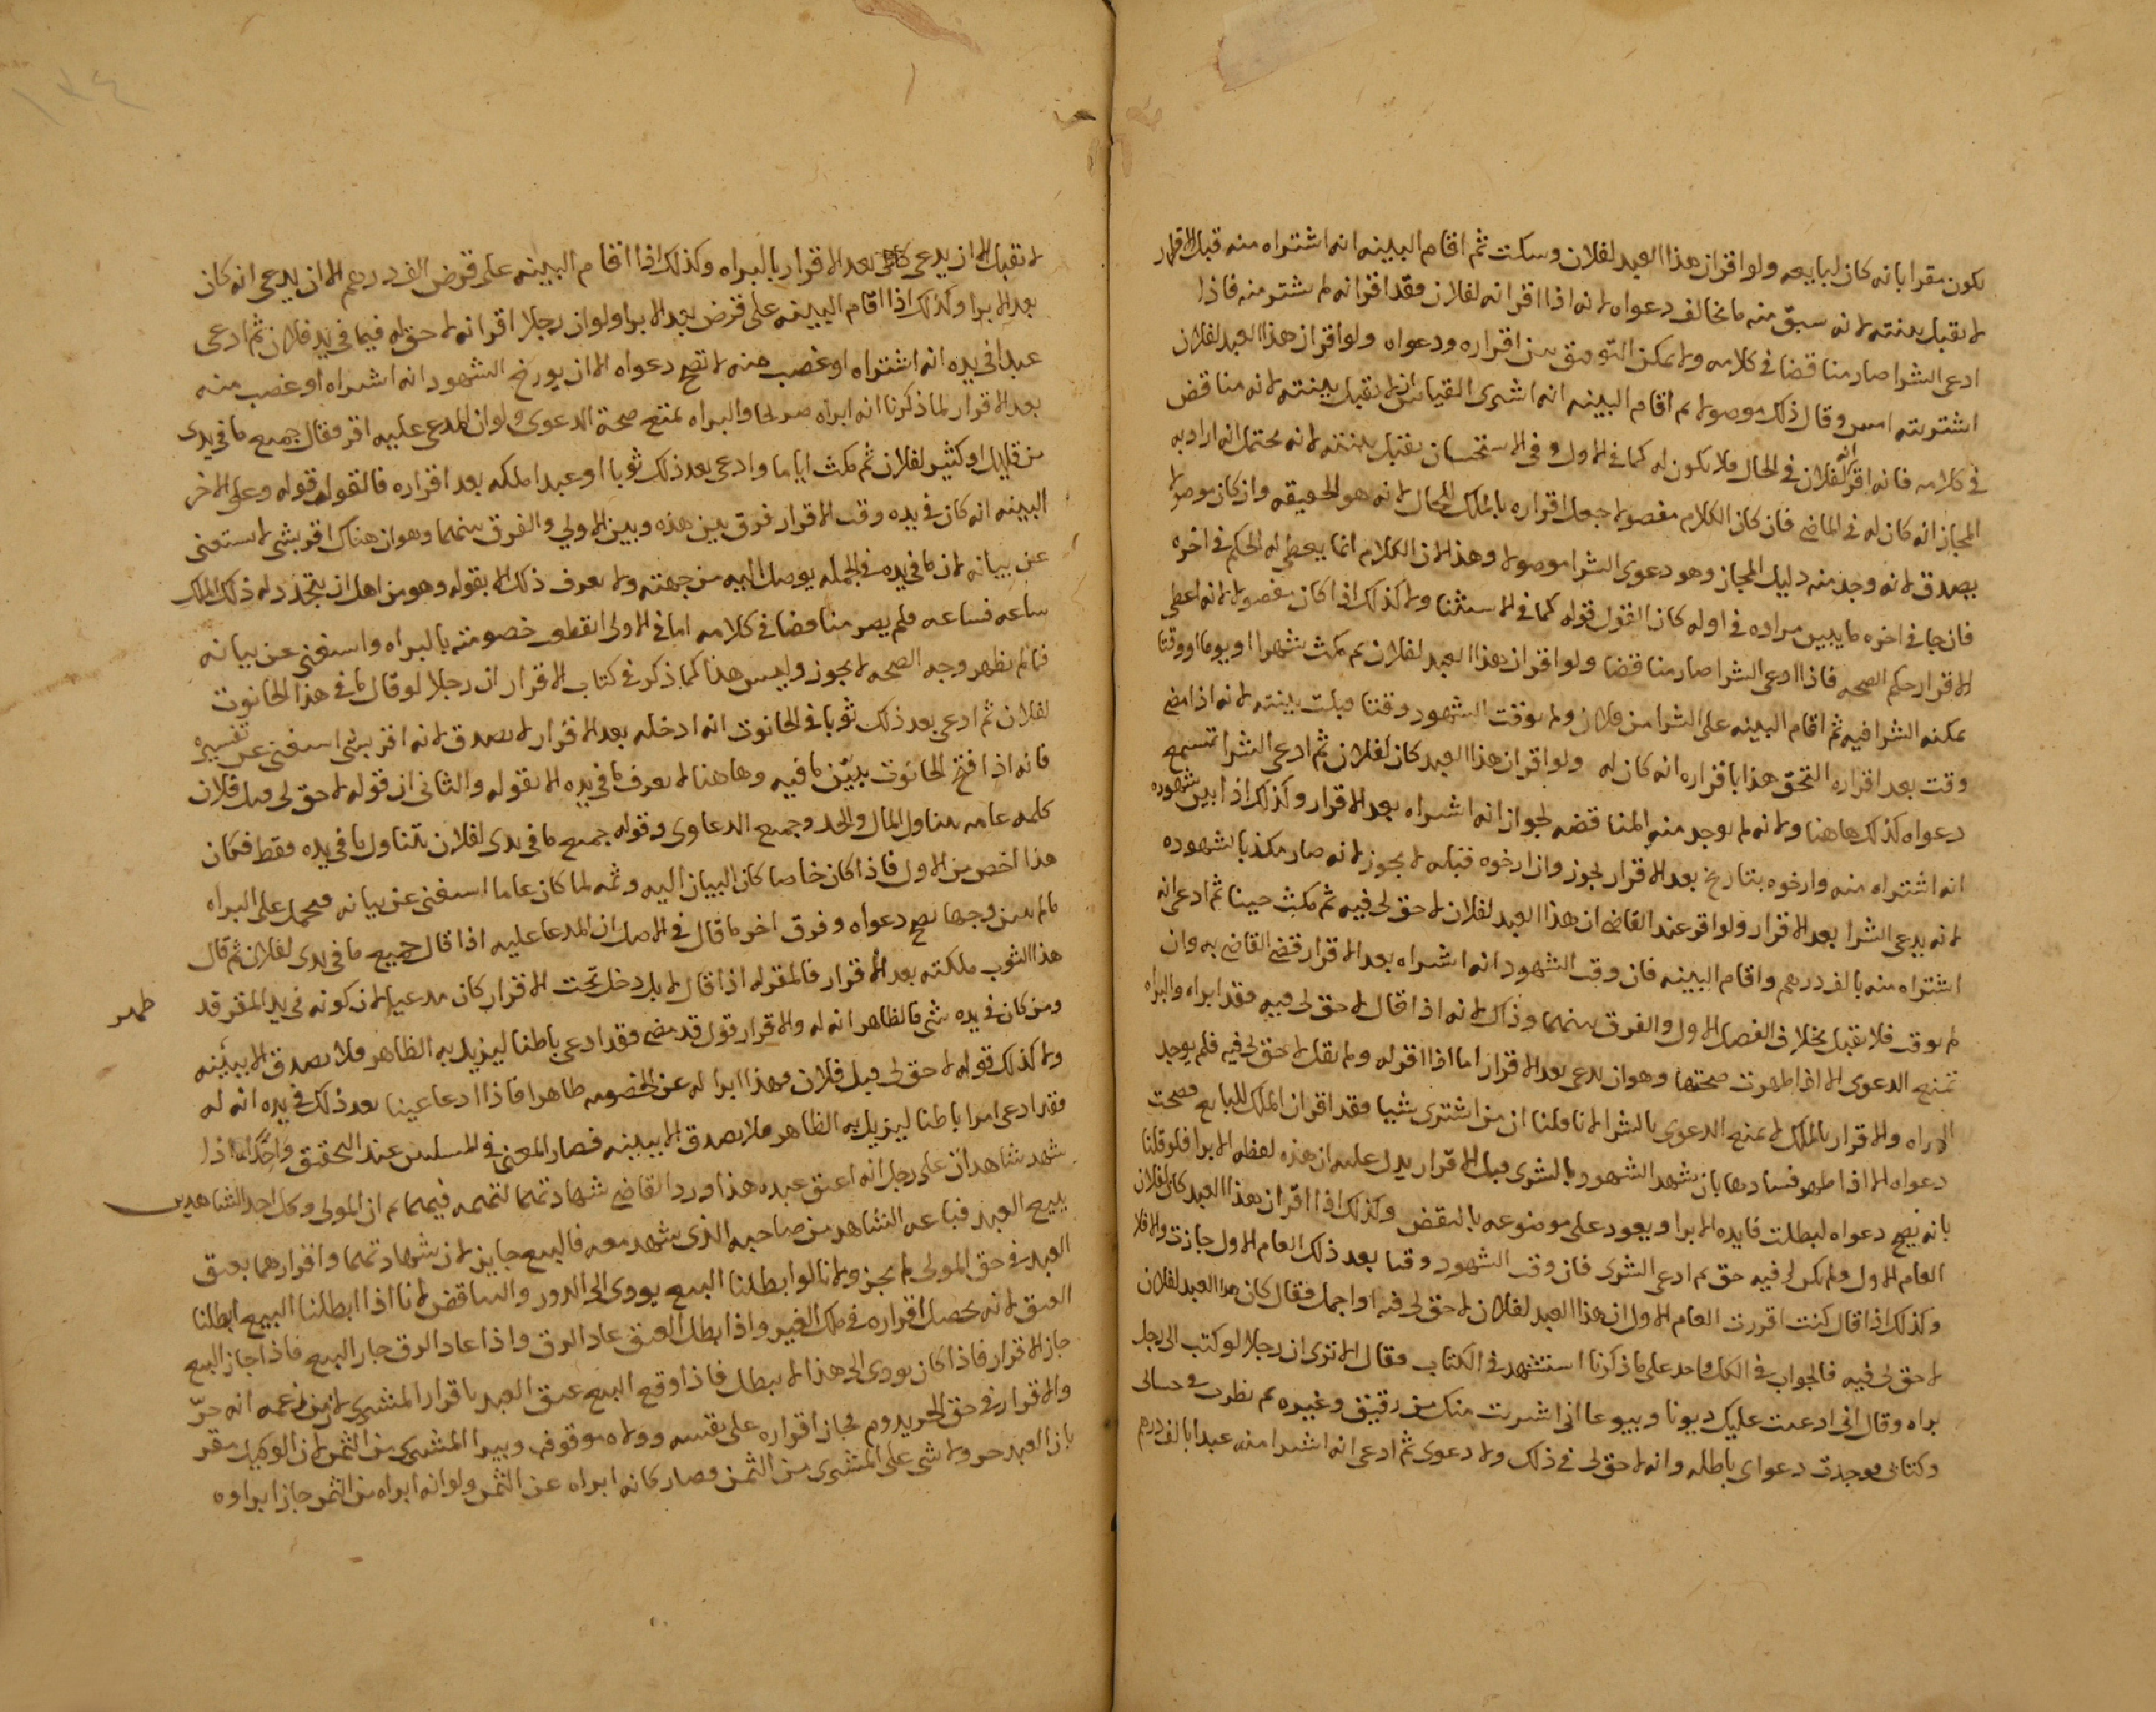 يكون مقرا بانه كان لبايعه ولو اقر ان هذا العبد لفلان وسكت ثم اقام البينه انه اشتراه منه قبل الاقرار
لا تقبل بينته لانه سبق منه ما يخالف دعواه لانه اذا اقر انه لفلان فقد اقر انه لم يشتر منه فاذا
ادعى الشرا صار مناقضا في كلامه ولا يمكن التوفيق بين اقراره ودعواه ولو اقر ان هذا العبد لفلان
اشتريته امس وقال ذلك موصولا ثم اقام البينه انه اشترى القياس ان لا تقبل بينته لانه مناقض
في كلامه فانه اقر انه لفلان في الحال فلا يكون له كما في الاول وفي الاستحسان تقبل بينته لانه محتمل انه اراد به
المجاز انه كان له في الماضي فان كان الكلام مفصولا جعل اقراره بالملك للحال لانه هو الحقيقه وان كان موصولا
يصدق لانه وجد منه دليل المجاز وهو دعوى الشرا موصولا وهذا لان الكلام انما يعطى له الحكم في اخره
فان جا في اخره ما يبين مراده في اوله كان القول قوله كما في الاستثنا ولا كذلك اذا كان مفصولا لانه اعطى
الاقرار حكم الصحه فاذا ادعى الشرا صار مناقضا ولو اقر ان هذا العبد لفلان ثم مكث شهرا او يوما او وقتا
يمكنه الشرا فيه ثم اقام البينه على الشرا من فلان ولم يوقت الشهود وقتا قبلت بينته لانه اذا مضى
وقت بعد اقراره التحق هذا باقراره انه كان له ولو اقر ان هذا العبد كان لفلان ثم ادعى الشرا تسمع
دعواه كذلك هاهنا ولانه لم يوجد منه المناقضه لجواز انه اشتراه بعد الاقرار وكذلك اذا بين شهوده
انه اشتراه منه وارخوه بتاريخ بعد الاقرار يجوز وان ارخوه قبله لا يجوز لانه صار مكذبا لشهوده
لانه يدعي الشرا بعد الاقرار ولو اقر عند القاضي ان هذا العبد لفلان لا حق لي فيه ثم مكث حينا ثم ادعى انه
اشتراه منه بالف درهم واقام البينه فان وقت الشهود انه اشتراه بعد الاقرار قضى القاضي به وان
لم يوقت فلا تقبل بخلاف الفصل الاول والفرق بينهما وذاك لانه اذا قال لا حق لي فيه فقد ابراه والبراه
تمنع الدعوى الا اذا ظهرت صحتها وهو ان يدعي بعد الاقرار اما اذا اقر له ولم يقل لا حق لي فيه فلم يوجد
البراه والاقرار بالملك لا يمنع الدعوى بالشرا لانا قلنا ان من اشترى شيا فقد اقر ان الملك للبايع فصحت
دعواه الا اذا ظهر فسادها بان شهد الشهود بالشرى قبل الاقرار يدل عليه ان هذه لفظه الابرا فلو قلنا
بانه يصح دعواه لبطلت فايده الابرا ويعود على موضوعه بالنقض وكذلك اذا اقر ان هذا العبد كان لفلان
العام الاول ولم يكن لي فيه حق ثم ادعى الشرى فان وقت الشهود وقتا بعد ذلك العام الاول جازت والا فلا
وكذلك اذا قال كنت اقررت العام الاول ان هذا العبد لفلان لا حق لي فيه او اجمل فقال كان هذا العبد لفلان
لا حق لي فيه فالجواب في الكل واحد على ما ذكرنا استشهد في الكتاب فقال الا ترى ان رجلا لو كتب الى رجل
براه وقال اني ادعيت عليك ديونا وبيوعا اني اشتريت منك من رقيق وغيره ثم نظرت في حسابي
وكتابي فوجدت دعواي باطله وانه لا حق لي في ذلك ولا دعوى ثم ادعى انه اشترا منه عبدا بالف درهم
لا تقبل الا ان يدعي بعد الاقرار بالبراه وكذلك اذا اقام البينه على قرض الف درهم الا ان يدعي انه كان
بعد الابرا وكذلك اذا اقام البينه على قرض بعد الابرا ولو ان رجلا اقر انه لا حق له فيما في يد فلان ثم ادعى
عبدا في يده انه اشتراه او غصب منه لا تصح دعواه الا ان يورخ الشهود انه اشتراه او غصب منه
بعد الاقرار لما ذكرنا انه ابراه صريحا والبراه تمنع صحة الدعوى ولو ان المدعى عليه اقر فقال جميع ما في يدي
من قليل او كثير لفلان ثم مكث اياما وادعى بعد ذلك ثوبا او عبدا ملكه بعد اقراره فالقول قوله وعلى الاخر
البينه انه كان في يده وقت الاقرار فرق بين هذه وبين الاولي والفرق بينهما وهو ان هناك اقر بشي لا يستغنى
عن بيانه لان ما في يده في الجمله يوصل اليه من جهته ولا يعرف ذلك الا بقوله وهو من اهل ان يتجدد له ذلك الملك
ساعه فساعه فلم يصر مناقضا في كلامه اما في الاولى انقطع خصومته بالبراه واستغنى عن بيانه
فما لم يظهر وجه الصحه لا يجوز وليس هذا كما ذكر في كتاب الاقرار ان رجلا لو قال ما في هذا الحانوت
لفلان ثم ادعى بعد ذلك ثوبا في الحانوت انه ادخله بعد الاقرار لا يصدق لانه اقر بشي استغنى عن تفسيره
فانه اذا فتح الحانوت يبين ما فيه وهاهنا لا يعرف ما في يده الا بقوله والثاني ان قوله لا حق لي قبل فلان
كلمه عامه يتناول المال والحد وجميع الدعاوى وقوله جميع ما في يدي لفلان يتناول ما في يده فقط فكان
هذا اخص من الاول فاذا كان خاصا كان البيان اليه وثمه لما كان عاما استغنى عن بيانه فحمل على البراه
ما لم يبين وجها يصح دعواه وفرق اخر ما قال في الاصل ان المدعا عليه اذا قال جميع ما في يدي لفلان ثم قال
هذا الثوب ملكته بعد الاقرار فالمقر له اذا قال لا بل دخل تحت الاقرار كان مدعيا لان كونه في يد المقر قد ظهر
ومن كان في يده شي فالظاهر انه له والاقرار قول قد مضى فقد ادعى باطنا ليزيل به الظاهر فلا يصدق الا ببينه
ولا كذلك قوله لا حق لي قبل فلان فهذا ابرا له عن الخصومه ظاهرا فاذا ادعا عينا بعد ذلك في يده انه له
فقد ادعى امرا باطنا ليزيل به الظاهر فلا يصدق الا ببينه فصار المعنى في المسلتين عند التحقيق واحدا اذا
شهد شاهدان على رجل انه اعتق عبده هذا ورد القاضي شهادتهما لتهمه فيهما ثم ان المولى وكل احد الشاهدين
ببيع العبد فباعه الشاهد من صاحبه الذي شهد معه فالبيع جايز لان شهادتهما واقرارهما بعتق
العبد في حق المولى لم يجز ولانا لو ابطلنا البيع يودي الى الدور والتناقض لانا اذا ابطلنا البيع ابطلنا
العتق لانه يحصل اقراره في ملك الغير واذا بطل العتق عاد الرق واذا عاد الرق جاز البيع فاذا جاز البيع
جاز الاقرار فاذا كان يودي الى هذا لا يبطل فاذا وقع البيع عتق العبد باقرار المشتري لان من زعمه انه حر
والاقرار في حق الحر يدوم فجاز اقراره على نفسه وولاه موقوف ويبرا المشتري من الثمن لان الوكيل مقر
بان العبد حر ولا شي على المشتري من الثمن فصار كانه ابراه عن الثمن ولو انه ابراه من الثمن جاز ابراوه